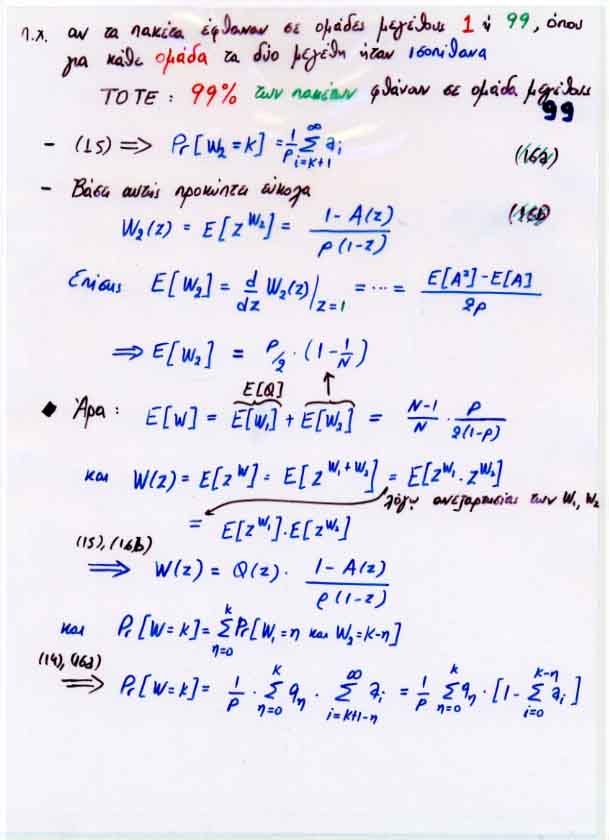 π.χ. αν τα πακέτα έφθαναν σε ομάδες μεγέθους 1 ή 99, όπου
για κάθε ομάδα τα δύο μεγέθη ήταν ισοπίθανα
ΤΟΤΕ: 99% των πακέτων φθάνουν σε ομάδα μεγέθους
99
- (15) => Pr[W₂=k] = 1/ρ Σ_{i=k+1}^{∞} a_i (16a)
- Βάσει αυτής προκύπτει εύκολα
W₂(z) = E[z^{W₂}] = (1 - A(z)) / (ρ(1-z)) (16b)
Επίσης E[W₂] = d/dz W₂(z)|_{z=1} = ... = (E[A²] - E[A]) / 2ρ
=> E[W₂] = ρ/2 · (1 - 1/N)
E[Q]
◆ Άρα: E[W] = E[W₁] + E[W₂] = (N-1)/N · ρ/(2(1-ρ))
και W(z) = E[z^W] = E[z^{W₁+W₂}] = E[z^{W₁} · z^{W₂}]
λόγω ανεξαρτησίας των W₁, W₂
= E[z^{W₁}] · E[z^{W₂}]
(15), (16b)
=> W(z) = Q(z) · (1 - A(z)) / (ρ(1-z))
και Pr[W=k] = Σ_{n=0}^{k} Pr[W₁=n και W₂=k-n]
(14), (16a)
=> Pr[W=k] = 1/ρ · Σ_{n=0}^{k} q_n · Σ_{i=k+1-n}^{∞} a_i = 1/ρ Σ_{n=0}^{k} q_n · [1 - Σ_{i=0}^{k-n} a_i]